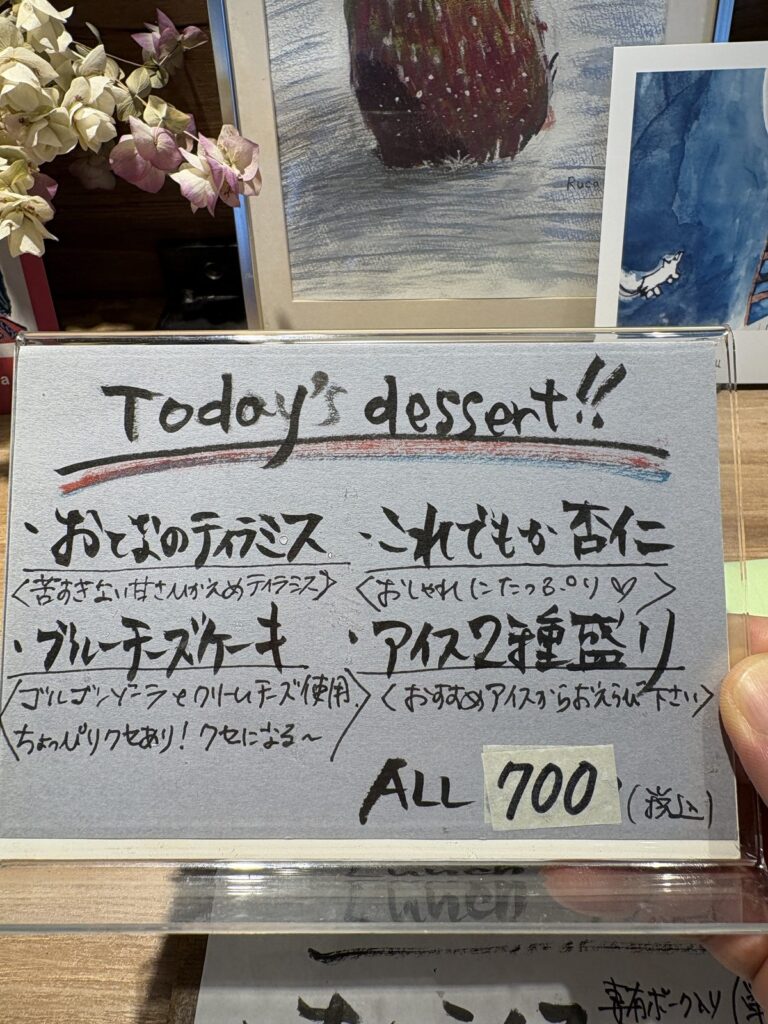 Ruca
Today's dessert!!
・おとなのティラミス
〈苦すぎない甘さひかえめティラミス〉
・これでもか杏仁
〈おしゃれにたっぷり♡〉
・ブルーチーズケーキ
〈ゴルゴンゾーラとクリームチーズ使用。
ちょっぴりクセあり!クセになる〜〉
・アイス2種盛り
〈おすすめアイスからおえらび下さい〉
ALL 700(税込)
Lunch
専有ポーク入り